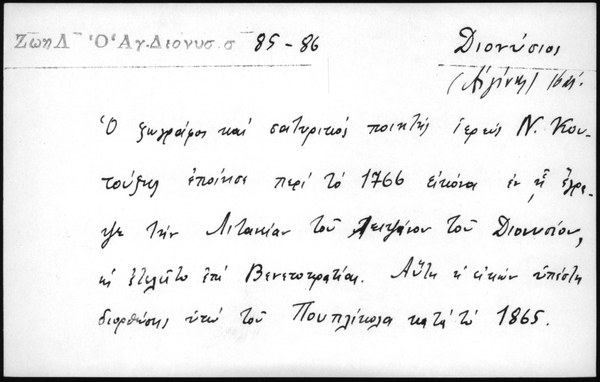 Ζωη Λ Ὁ Ἁγ. Διονυσ. σ 85-86
Διονύσιος
(Αἰγίνης)
Ὁ ζωγράφος καί σατυρικός ποιητής ἱερεύς Ν. Κου-
τούζης ἐποίησε περί τό 1766 εἰκόνα ἐν ᾗ ἔγρα-
ψε τήν Λιτανίαν τοῦ Λειψάνου τοῦ Διονυσίου,
ὡς ἐτελεῖτο ἐπί Βενετοκρατίας. Αὕτη ἡ εἰκών ὑπέστη
διορθώσεις ὑπό τοῦ Πουπλίκολα κατά τό 1865.